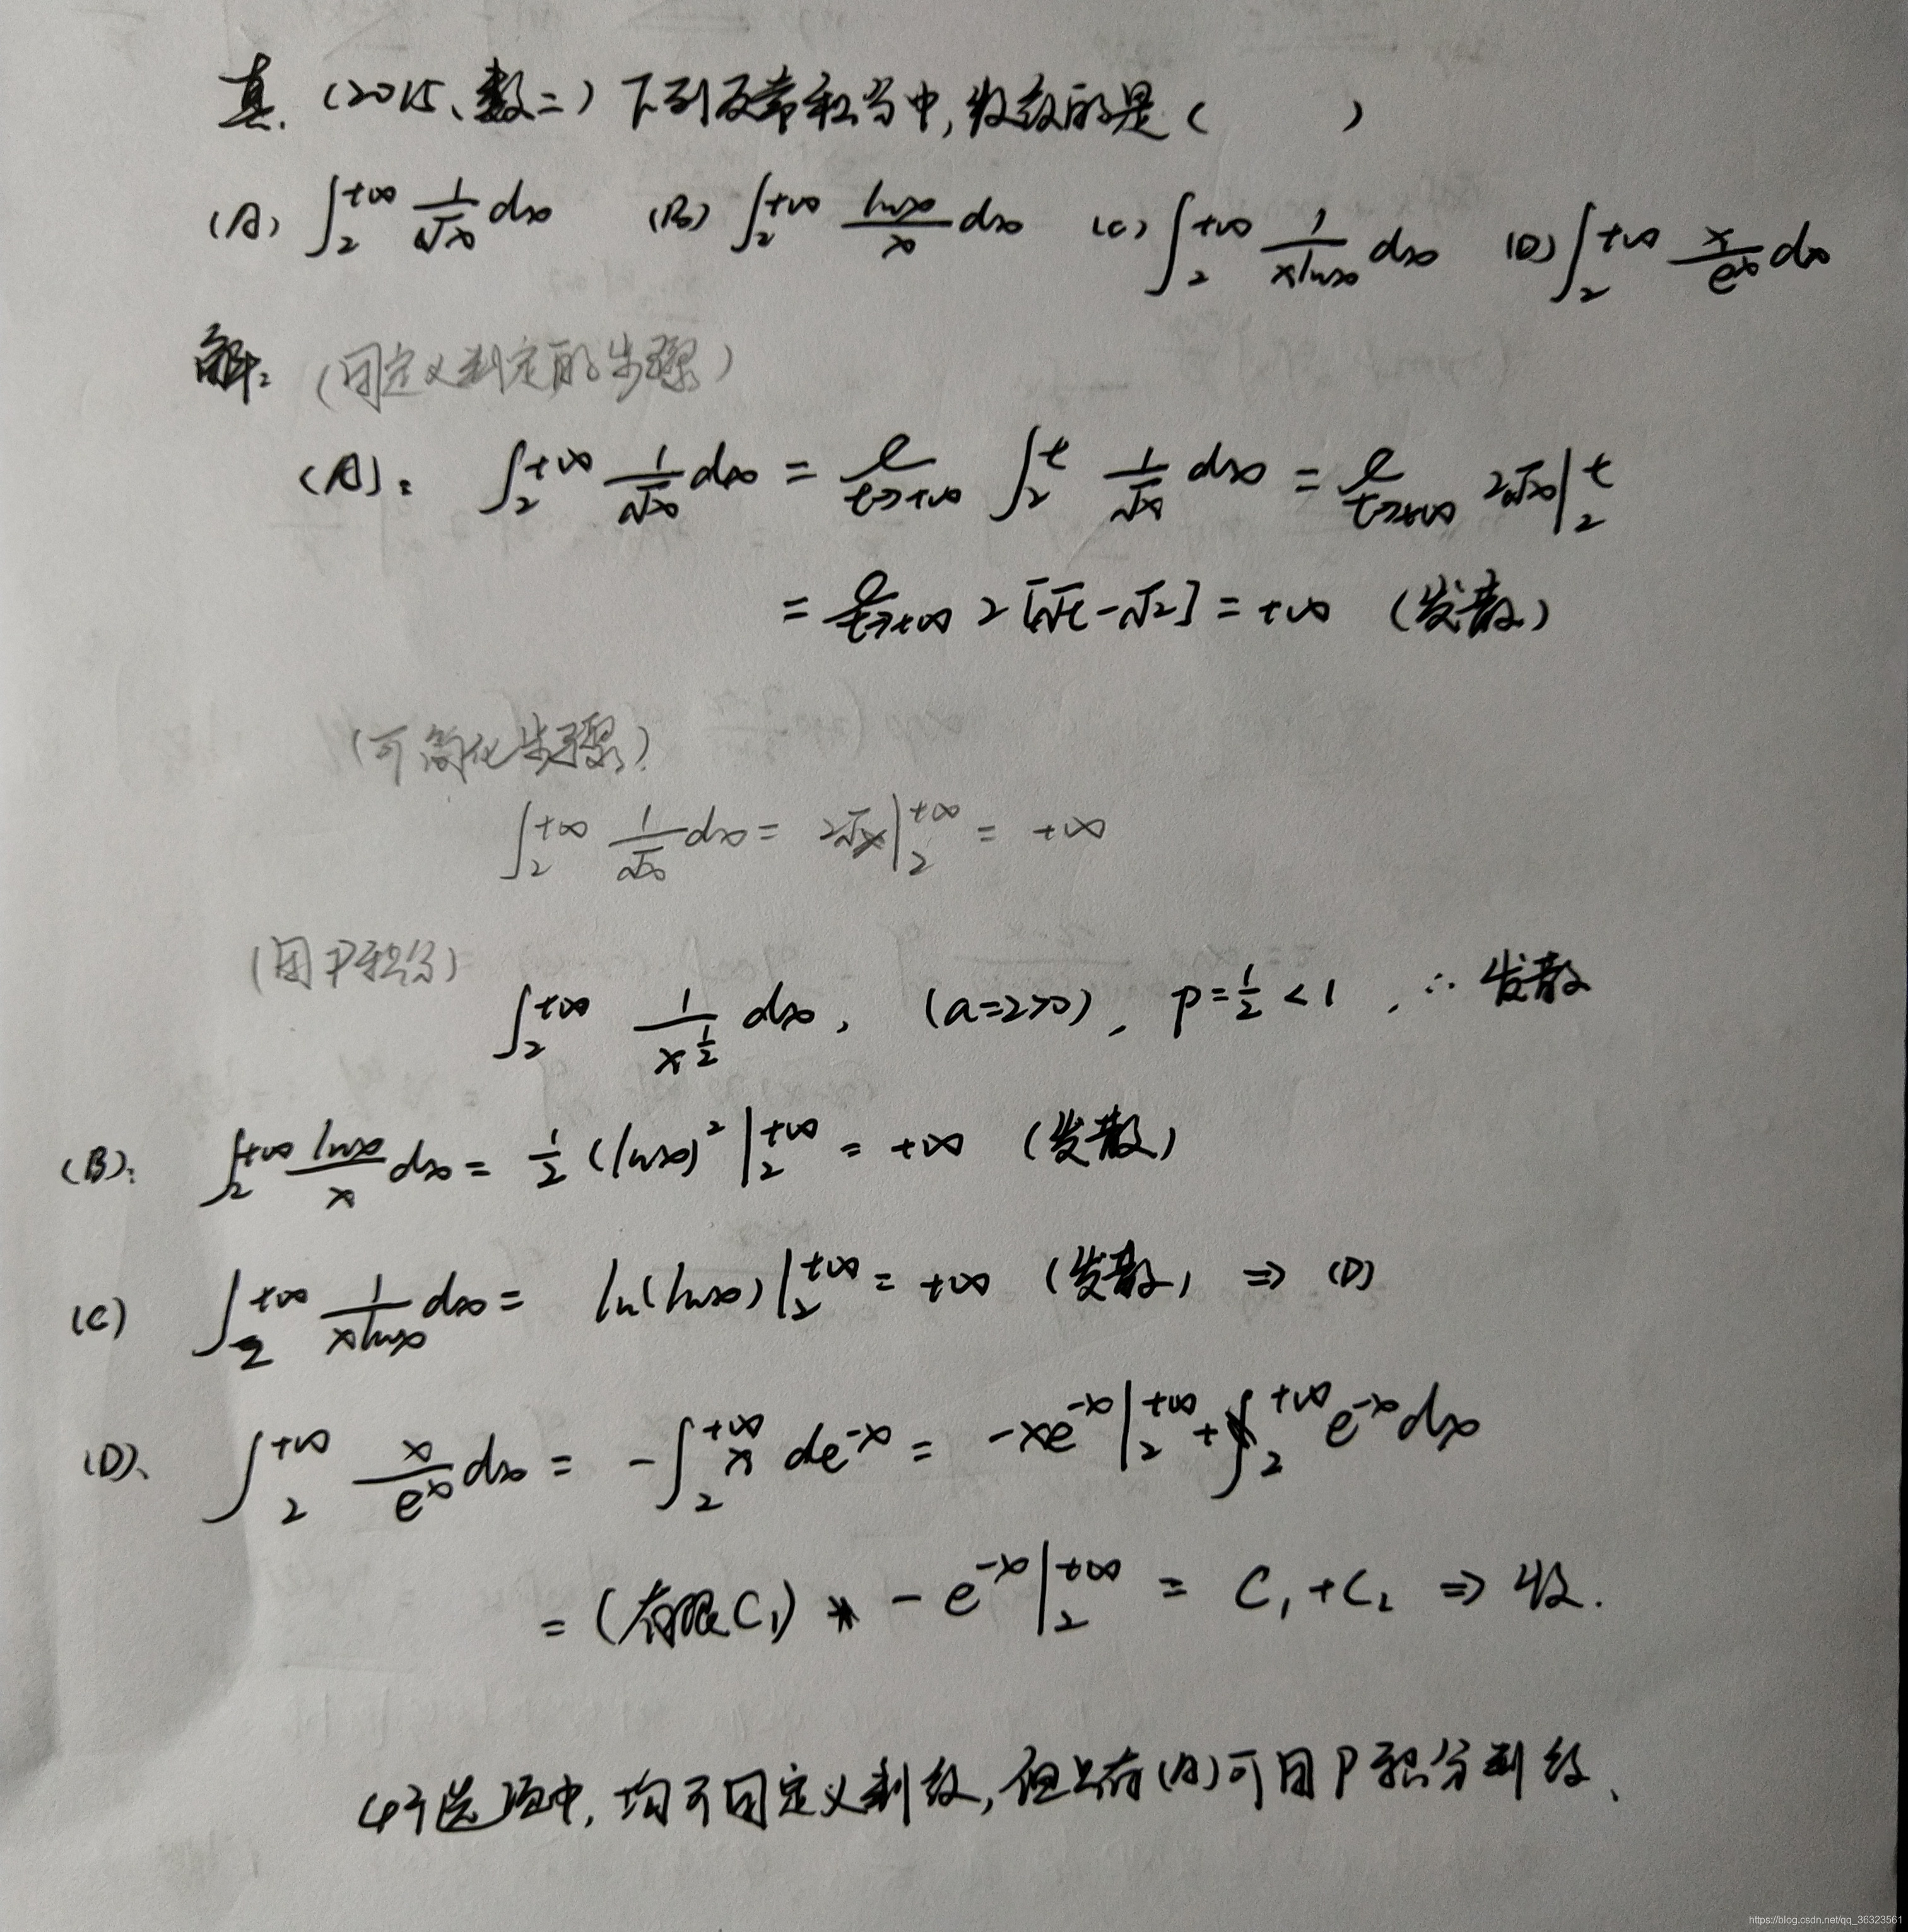 真.(2015、数二)下列反常积分中,收敛的是( )
(A) ∫₂^{+∞} 1/√x dx (B) ∫₂^{+∞} lnx/x dx (C) ∫₂^{+∞} 1/(xlnx) dx (D) ∫₂^{+∞} x/e^x dx
解: (用定义判定的步骤)
(A): ∫₂^{+∞} 1/√x dx = ℓ_{t→+∞} ∫₂^t 1/√x dx = ℓ_{t→+∞} 2√x |₂^t
= ℓ_{t→+∞} 2[√t-√2] = +∞ (发散)
(可简化步骤)
∫₂^{+∞} 1/√x dx = 2√x |₂^{+∞} = +∞
(用P积分)
∫₂^{+∞} 1/x^{1/2} dx, (a=2>0), p=1/2<1, ∴发散
(B): ∫₂^{+∞} lnx/x dx = 1/2 (lnx)² |₂^{+∞} = +∞ (发散)
(C) ∫₂^{+∞} 1/(xlnx) dx = ln(lnx) |₂^{+∞} = +∞ (发散) ⇒ (D)
(D)、 ∫₂^{+∞} x/e^x dx = -∫₂^{+∞} x de^{-x} = -xe^{-x} |₂^{+∞} + ∫₂^{+∞} e^{-x} dx
= (有限C₁) - e^{-x} |₂^{+∞} = C₁+C₂ ⇒ 收.
4个选项中,均可用定义判敛,但只有(A)可用P积分判敛、
https://blog.csdn.net/qq_36323561